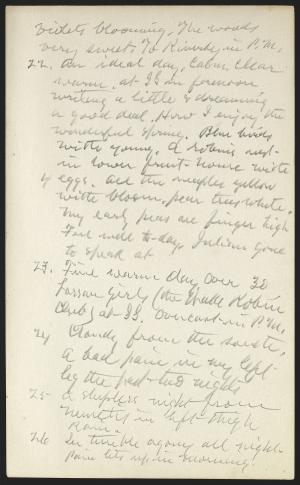 violets blooming, The woods
very sweet. To Riverby in P.M.
22. An ideal day, calm, clear
warm. at S.S in forenoon
writing a little & dreaming
a good deal. How I enjoy the
wonderful spring. Blue birds
with young. A robins nest
in lower fruit-house with
4 eggs. All the maples yellow
with bloom, pear trees white.
My early peas are finger high
Feel well to-day. Julian gone
to speak at
23. Fine warm day, over 30
Vassar girls (the Wake Robin
Club) at S.S. Overcast in P.M.
24 Cloudy from the south.
A bad pain in my left
leg the past two nights
25 a sleepless night from
neuritis in left thigh
Rain.
26 In terrible agony all night.
Pain lets up in morning.